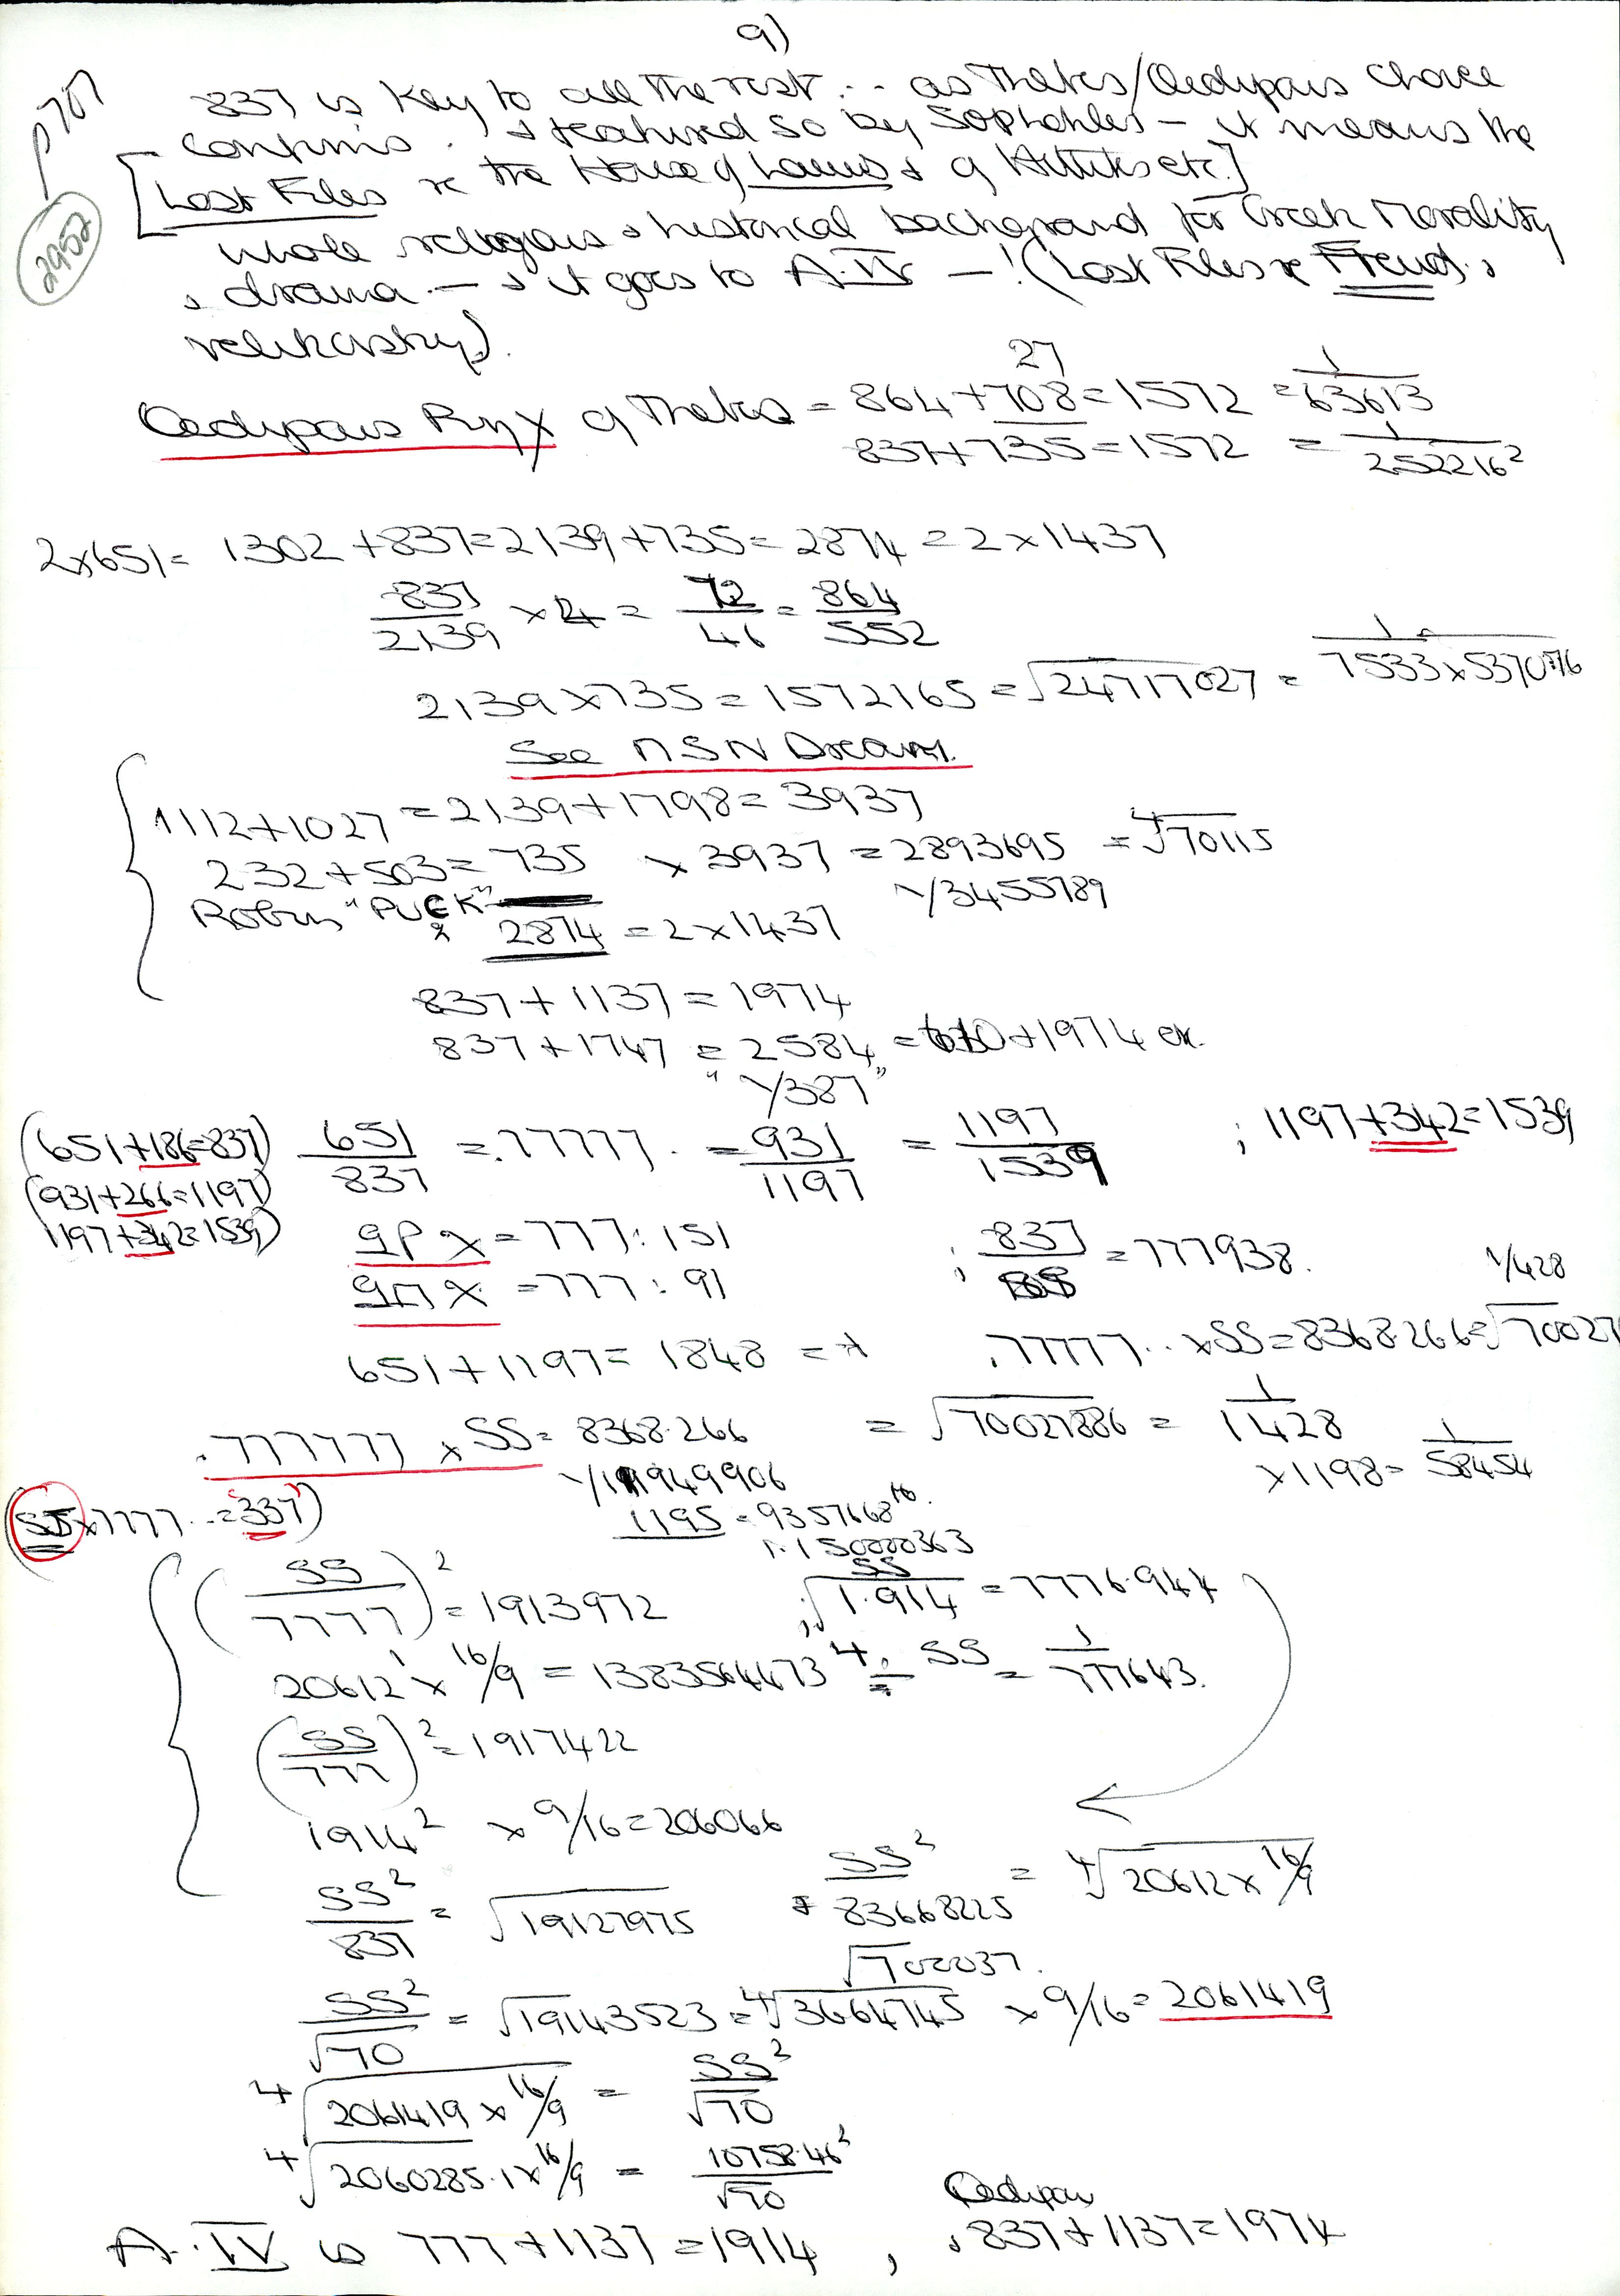 9)
p 707
2952
837 is key to all the rest... as Thebes/Oedipous choice
confirms. & featured so by Sophokles – it means the
[Lost Files re the House of Laius & of Attitkis etc.]
whole religious & historical background for Greek Morality
& drama – & it goes to A.IV –! (Lost Files re Freud,
relikastry).
Oedipous Rnx of Thebes = 864+708=1572 = 1/63613
27
837+735=1572 = 1/252216²
2x651= 1302+837=2139+735=2874=2x1437
837/2139 x4= 72/46 = 864/552
2139x735=1572165=√24717027 = 1/7533x537076
See MSN Dream.
1112+1027=2139+1798=3937
232+503=735 x3937=2893695 =⁴√70115
Robin "PUCK" 1/3455789
2874=2x1437
837+1137=1974
837+1747=2584=610+1974
"1/387"
(651+186=837) 651/837 =.77777. =931/1197 = 1197/1539 ; 1197+342=1539
(931+266=1197)
1197+342=1539)
9PX=777:151 ; 837/ =777938. 1/428
9MX=777:91
651+1197=1848 = .77777..xSS=8368.266=√70027
.777777 xSS=8368.266 =√70027886 = 1/1428
x1198= 1/58454
1195=9357668¹⁶
1.150000363
(SSx7777..=337)
(SS/7777)²=1913972 ; SS/√1.914 =7776.944
20612 x 16/9 = 1383564473⁴ ÷ SS = 1/777643.
(SS/777)²=1917422
1914² x 9/16=206066
SS²/837 = √19127975 SS²/83668225 = ⁴√20612x16/9
√700037.
SS²/√70 = √19143523=⁴√3664745 x9/16=2061419
⁴√2061419x16/9 = SS²/√70
⁴√2060285.1x16/9 = 10758.46²/√70
Oedipous
A.IV is 777+1137=1914, & 837+1137=1974